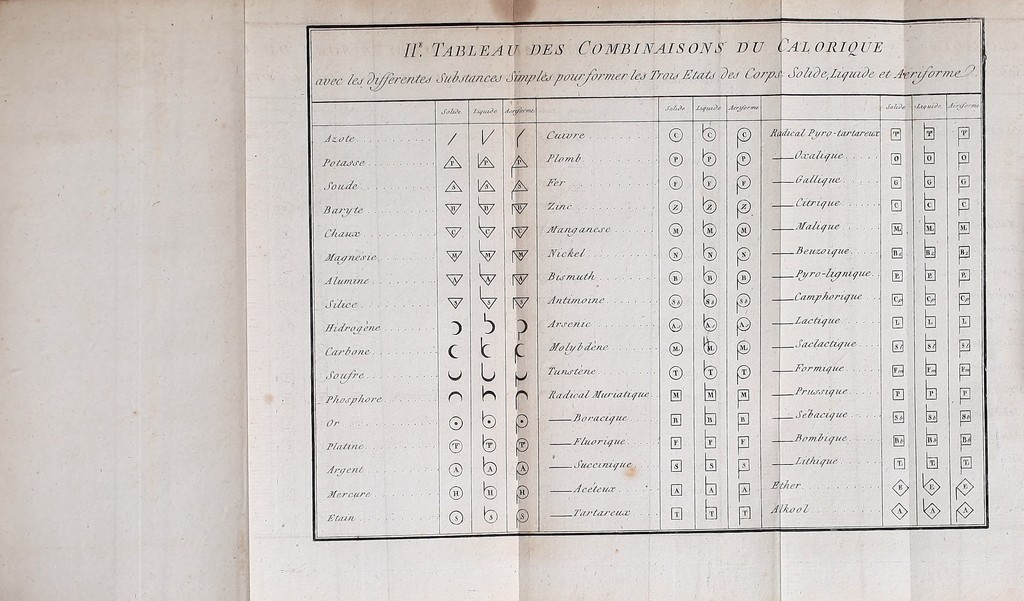 IIe. TABLEAU DES COMBINAISONS DU CALORIQUE
avec les differentes Substances Simples pour former les Trois Etats des Corps Solide, Liquide et Aeriforme.
Solide Liquide Aeriforme
Azote
Potasse P P P
Soude S S S
Baryte B B B
Chaux C C C
Magnésie M M M
Alumine A A A
Silice S S S
Hidrogène
Carbone
Soufre
Phosphore
Or
Platine T T T
Argent A A A
Mercure H H H
Etain S S S
Solide Liquide Aeriforme
Cuivre C C C
Plomb P P P
Fer F F F
Zinc Z Z Z
Manganese M M M
Nickel N N N
Bismuth B B B
Antimoine
Arsenic
Molybdène M M M
Tunstène T T T
Radical Muriatique M M M
Boracique B B B
Fluorique F F F
Succinique S S S
Acéteux A A A
Tartareux T T T
Solide Liquide Aeriforme
Radical Pyro-tartareux
Oxalique O O O
Gallique G G G
Citrique C C C
Malique
Benzoique
Pyro-lignique
Camphorique
Lactique L L L
Saclactique
Formique
Prussique P P P
Sébacique
Bombique
Lithique
Ether E E E
Alkool A A A